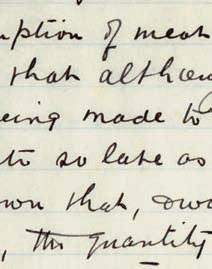 mption of meat
that althou
eing made to
to so late as
own that, owi
, the quantity